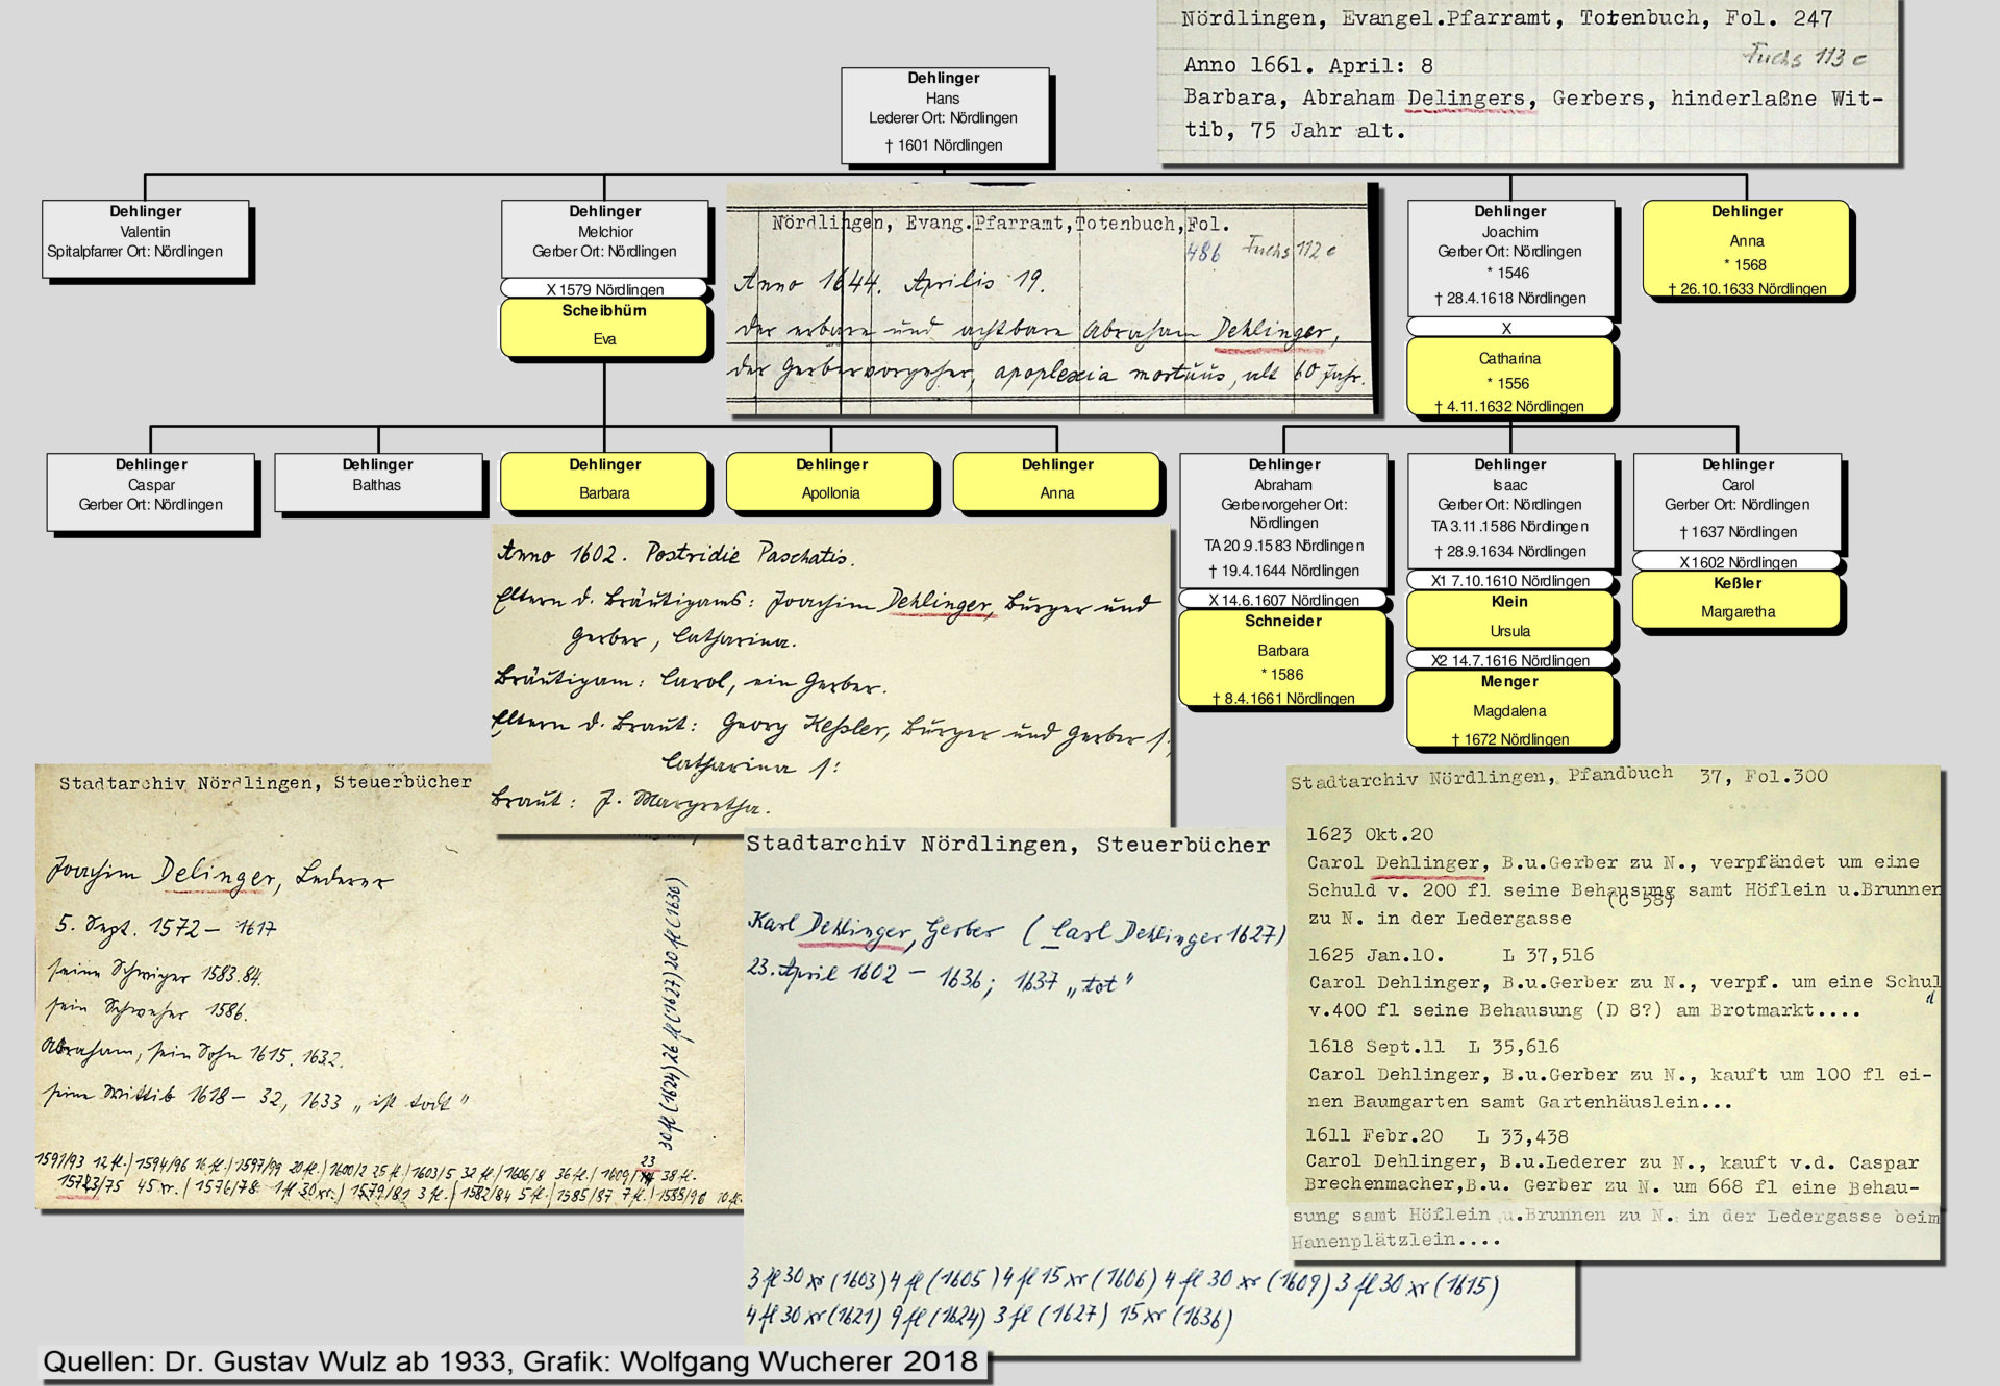 Nördlingen, Evangel.Pfarramt, Totenbuch, Fol. 247
Fuchs 113 c
Anno 1661. April: 8
Barbara, Abraham Delingers, Gerbers, hinderlaßne Wit-
tib, 75 Jahr alt.
Dehlinger
Hans
Lederer Ort: Nördlingen
† 1601 Nördlingen
Dehlinger
Valentin
Spitalpfarrer Ort: Nördlingen
Dehlinger
Melchior
Gerber Ort: Nördlingen
X 1579 Nördlingen
Scheibhürn
Eva
Nördlingen, Evang.Pfarramt,Totenbuch,Fol.
486 Fuchs 112 c
Anno 1644. Aprilis 19.
der erbare und achtbare Abraham Dehlinger,
der Gerbervorgeher, apoplexia mortuus, alt 60 Jahr.
Dehlinger
Joachim
Gerber Ort: Nördlingen
* 1546
† 28.4.1618 Nördlingen
X
Catharina
* 1556
† 4.11.1632 Nördlingen
Dehlinger
Anna
* 1568
† 26.10.1633 Nördlingen
Dehlinger
Caspar
Gerber Ort: Nördlingen
Dehlinger
Balthas
Dehlinger
Barbara
Dehlinger
Apollonia
Dehlinger
Anna
Dehlinger
Abraham
Gerbervorgeher Ort:
Nördlingen
TA 20.9.1583 Nördlingen
† 19.4.1644 Nördlingen
X 14.6.1607 Nördlingen
Schneider
Barbara
* 1586
† 8.4.1661 Nördlingen
Dehlinger
Isaac
Gerber Ort: Nördlingen
TA 3.11.1586 Nördlingen
† 28.9.1634 Nördlingen
X1 7.10.1610 Nördlingen
Klein
Ursula
X2 14.7.1616 Nördlingen
Menger
Magdalena
† 1672 Nördlingen
Dehlinger
Carol
Gerber Ort: Nördlingen
† 1637 Nördlingen
X 1602 Nördlingen
Keßler
Margaretha
Anno 1602. Postridie Paschatis.
Eltern d. Bräutigams: Joachim Dehlinger, Bürger und
Gerber, Catharina.
Bräutigam: Carol, ein Gerber.
Eltern d. Braut: Georg Keßler, Bürger und Gerber s:
Catharina s:
Braut: J. Margretha.
Stadtarchiv Nördlingen, Steuerbücher
Joachim Delinger, Lederer
5. Sept. 1572 – 1617
seine Schwiger 1583.84.
sein Schweher 1586.
Abraham, sein Sohn 1615. 1632.
seine Wittib 1618 – 32, 1633 „ist todt"
30 fl (1624) 26 fl (1627) 20 fl (1630)
1591/93 12 fl./ 1594/96 16 fl./ 1597/99 20 fl./ 1600/2 25 fl./ 1603/5 32 fl./ 1606/8 36 fl./ 1609/ 23 38 fl.
1573/75 45 xr./ 1576/78 1 fl 30 xr./ 1579/81 3 fl./ 1582/84 5 fl./ 1585/87 7 fl./ 1588/90 10 fl.
Stadtarchiv Nördlingen, Steuerbücher
Karl Dehlinger, Gerber (Carl Dehlinger 1627)
23. April 1602 – 1636; 1637 „tot"
3 fl 30 xr (1603) 4 fl (1605) 4 fl 15 xr (1606) 4 fl 30 xr (1609) 3 fl 30 xr (1615)
4 fl 30 xr (1621) 9 fl (1624) 3 fl (1627) 15 xr (1636)
Stadtarchiv Nördlingen, Pfandbuch 37, Fol.300
1623 Okt.20
Carol Dehlinger, B.u.Gerber zu N., verpfändet um eine
Schuld v. 200 fl seine Behausung samt Höflein u.Brunnen
(C 58)
zu N. in der Ledergasse
1625 Jan.10. L 37,516
Carol Dehlinger, B.u.Gerber zu N., verpf. um eine Schuld
v.400 fl seine Behausung (D 8?) am Brotmarkt....
1618 Sept.11 L 35,616
Carol Dehlinger, B.u.Gerber zu N., kauft um 100 fl ei-
nen Baumgarten samt Gartenhäuslein...
1611 Febr.20 L 33,438
Carol Dehlinger, B.u.Lederer zu N., kauft v.d. Caspar
Brechenmacher,B.u. Gerber zu N. um 668 fl eine Behau-
sung samt Höflein u.Brunnen zu N. in der Ledergasse beim
Hanenplätzlein....
Quellen: Dr. Gustav Wulz ab 1933, Grafik: Wolfgang Wucherer 2018